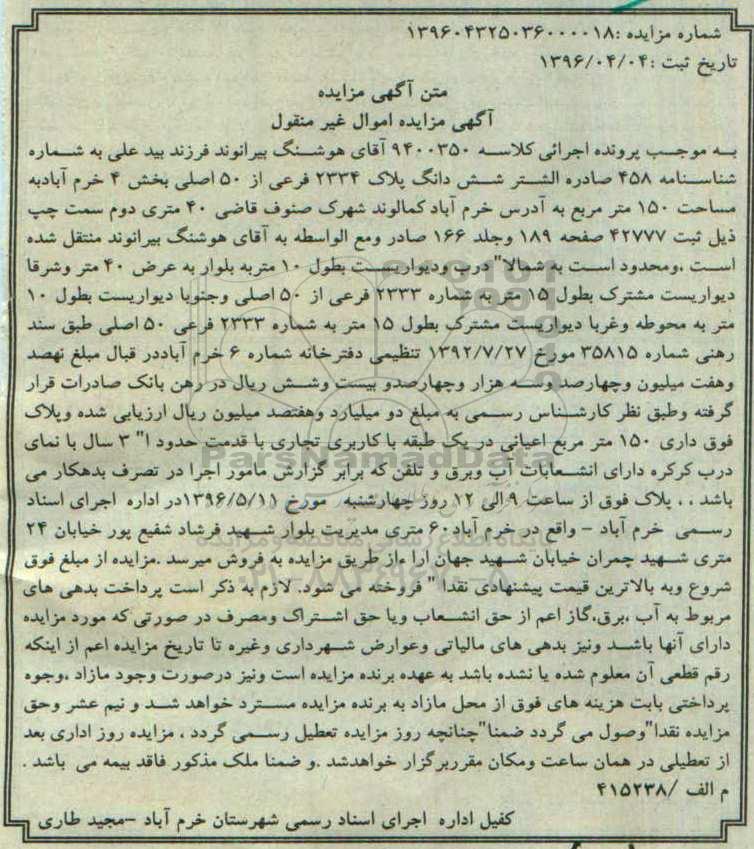 شماره مزایده :۱۳۹۶۰۴۳۲۵۰۳۶۰۰۰۰۱۸
تاریخ ثبت :۱۳۹۶/۰۴/۰۴
متن آگهی مزایده
آگهی مزایده اموال غیر منقول
به موجب پرونده اجرائی کلاسه ۹۴۰۰۳۵۰ آقای هوشنگ بیرانوند فرزند بید علی به شماره
شناسنامه ۴۵۸ صادره الشتر شش دانگ پلاک ۲۳۳۴ فرعی از ۵۰ اصلی بخش ۴ خرم آبادبه
مساحت ۱۵۰ متر مربع به آدرس خرم آباد کمالوند شهرک صنوف قاضی ۴۰ متری دوم سمت چپ
ذیل ثبت ۴۲۷۷۷ صفحه ۱۸۹ وجلد ۱۶۶ صادر ومع الواسطه به آقای هوشنگ بیرانوند منتقل شده
است ،ومحدود است به شمالا" درب ودیواریست بطول ۱۰ متربه بلوار به عرض ۴۰ متر وشرقا
دیواریست مشترک بطول ۱۵ متر به شماره ۲۳۳۳ فرعی از ۵۰ اصلی وجنوبا دیواریست بطول ۱۰
متر به محوطه وغربا دیواریست مشترک بطول ۱۵ متر به شماره ۲۳۳۳ فرعی ۵۰ اصلی طبق سند
رهنی شماره ۳۵۸۱۵ مورخ ۱۳۹۲/۷/۲۷ تنظیمی دفترخانه شماره ۶ خرم آباددر قبال مبلغ نهصد
وهفت میلیون وچهارصد وسه هزار وچهارصدو بیست وشش ریال در رهن بانک صادرات قرار
گرفته وطبق نظر کارشناس رسمی به مبلغ دو میلیارد وهفتصد میلیون ریال ارزیابی شده وپلاک
فوق داری ۱۵۰ متر مربع اعیانی در یک طبقه با کاربری تجاری با قدمت حدود ا" ۳ سال با نمای
درب کرکره دارای انشعابات آب وبرق و تلفن که برابر گزارش مامور اجرا در تصرف بدهکار می
باشد . . پلاک فوق از ساعت ۹ الی ۱۲ روز چهارشنبه مورخ ۱۳۹۶/۵/۱۱در اداره اجرای اسناد
رسمی خرم آباد – واقع در خرم آباد۶۰ متری مدیریت بلوار شهید فرشاد شفیع پور خیابان ۲۴
متری شهید چمران خیابان شهید جهان ارا ،از طریق مزایده به فروش میرسد .مزایده از مبلغ فوق
شروع وبه بالاترین قیمت پیشنهادی نقدا" فروخته می شود. لازم به ذکر است پرداخت بدهی های
مربوط به آب ،برق،گاز اعم از حق انشعاب ویا حق اشتراک ومصرف در صورتی که مورد مزایده
دارای آنها باشد ونیز بدهی های مالیاتی وعوارض شهرداری وغیره تا تاریخ مزایده اعم از اینکه
رقم قطعی آن معلوم شده یا نشده باشد به عهده برنده مزایده است ونیز درصورت وجود مازاد ،وجوه
پرداختی بابت هزینه های فوق از محل مازاد به برنده مزایده مسترد خواهد شد و نیم عشر وحق
مزایده نقدا"وصول می گردد ضمنا"چنانچه روز مزایده تعطیل رسمی گردد ، مزایده روز اداری بعد
از تعطیلی در همان ساعت ومکان مقرربرگزار خواهدشد .و ضمنا ملک مذکور فاقد بیمه می باشد .
م الف /۴۱۵۲۳۸
کفیل اداره اجرای اسناد رسمی شهرستان خرم آباد –مجید طاری
ParsNamadData